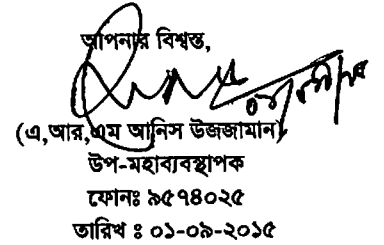 আপনার বিশ্বস্ত,
(এ,আর,এম আনিস উজজামান)
উপ-মহাব্যবস্থাপক
ফোনঃ ৯৫৭৪০২৫
তারিখ ঃ ০১-০৯-২০১৫